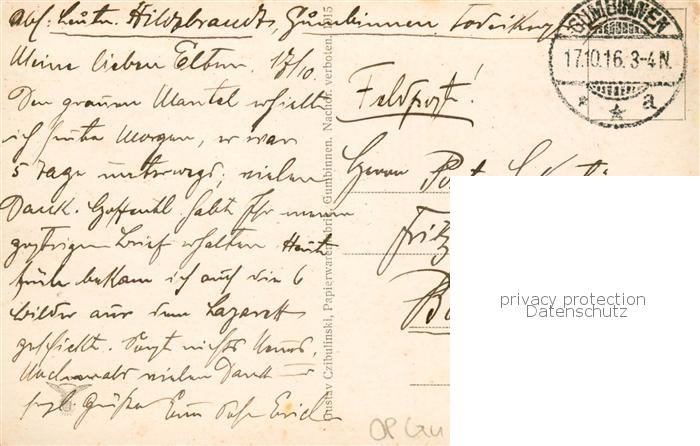 Abs. Leutn. Hildebrandt, Gumbinnen,
Meine lieben Eltern. 17/10.
Den grauen Mantel erhielt
ich heute Morgen, er war
5 Tage unterwegs; vielen
Dank. Hoffentl. habt Ihr meinen
gestrigen Brief erhalten. Heute
früh bekam ich auch die 6
Bilder aus dem Lazarett
geschickt. Sonst nichts Neues,
Nochmals vielen Dank
herzl. Grüße Euer Sohn Erich
Gustav Czibulinski, Papierwarenfabrik, Gumbinnen. Nachdr. verboten. 1915
GUMBINNEN
17.10.16. 3-4 N.
* * a
Feldpost!
Herrn
Fritz
privacy protection
Datenschutz